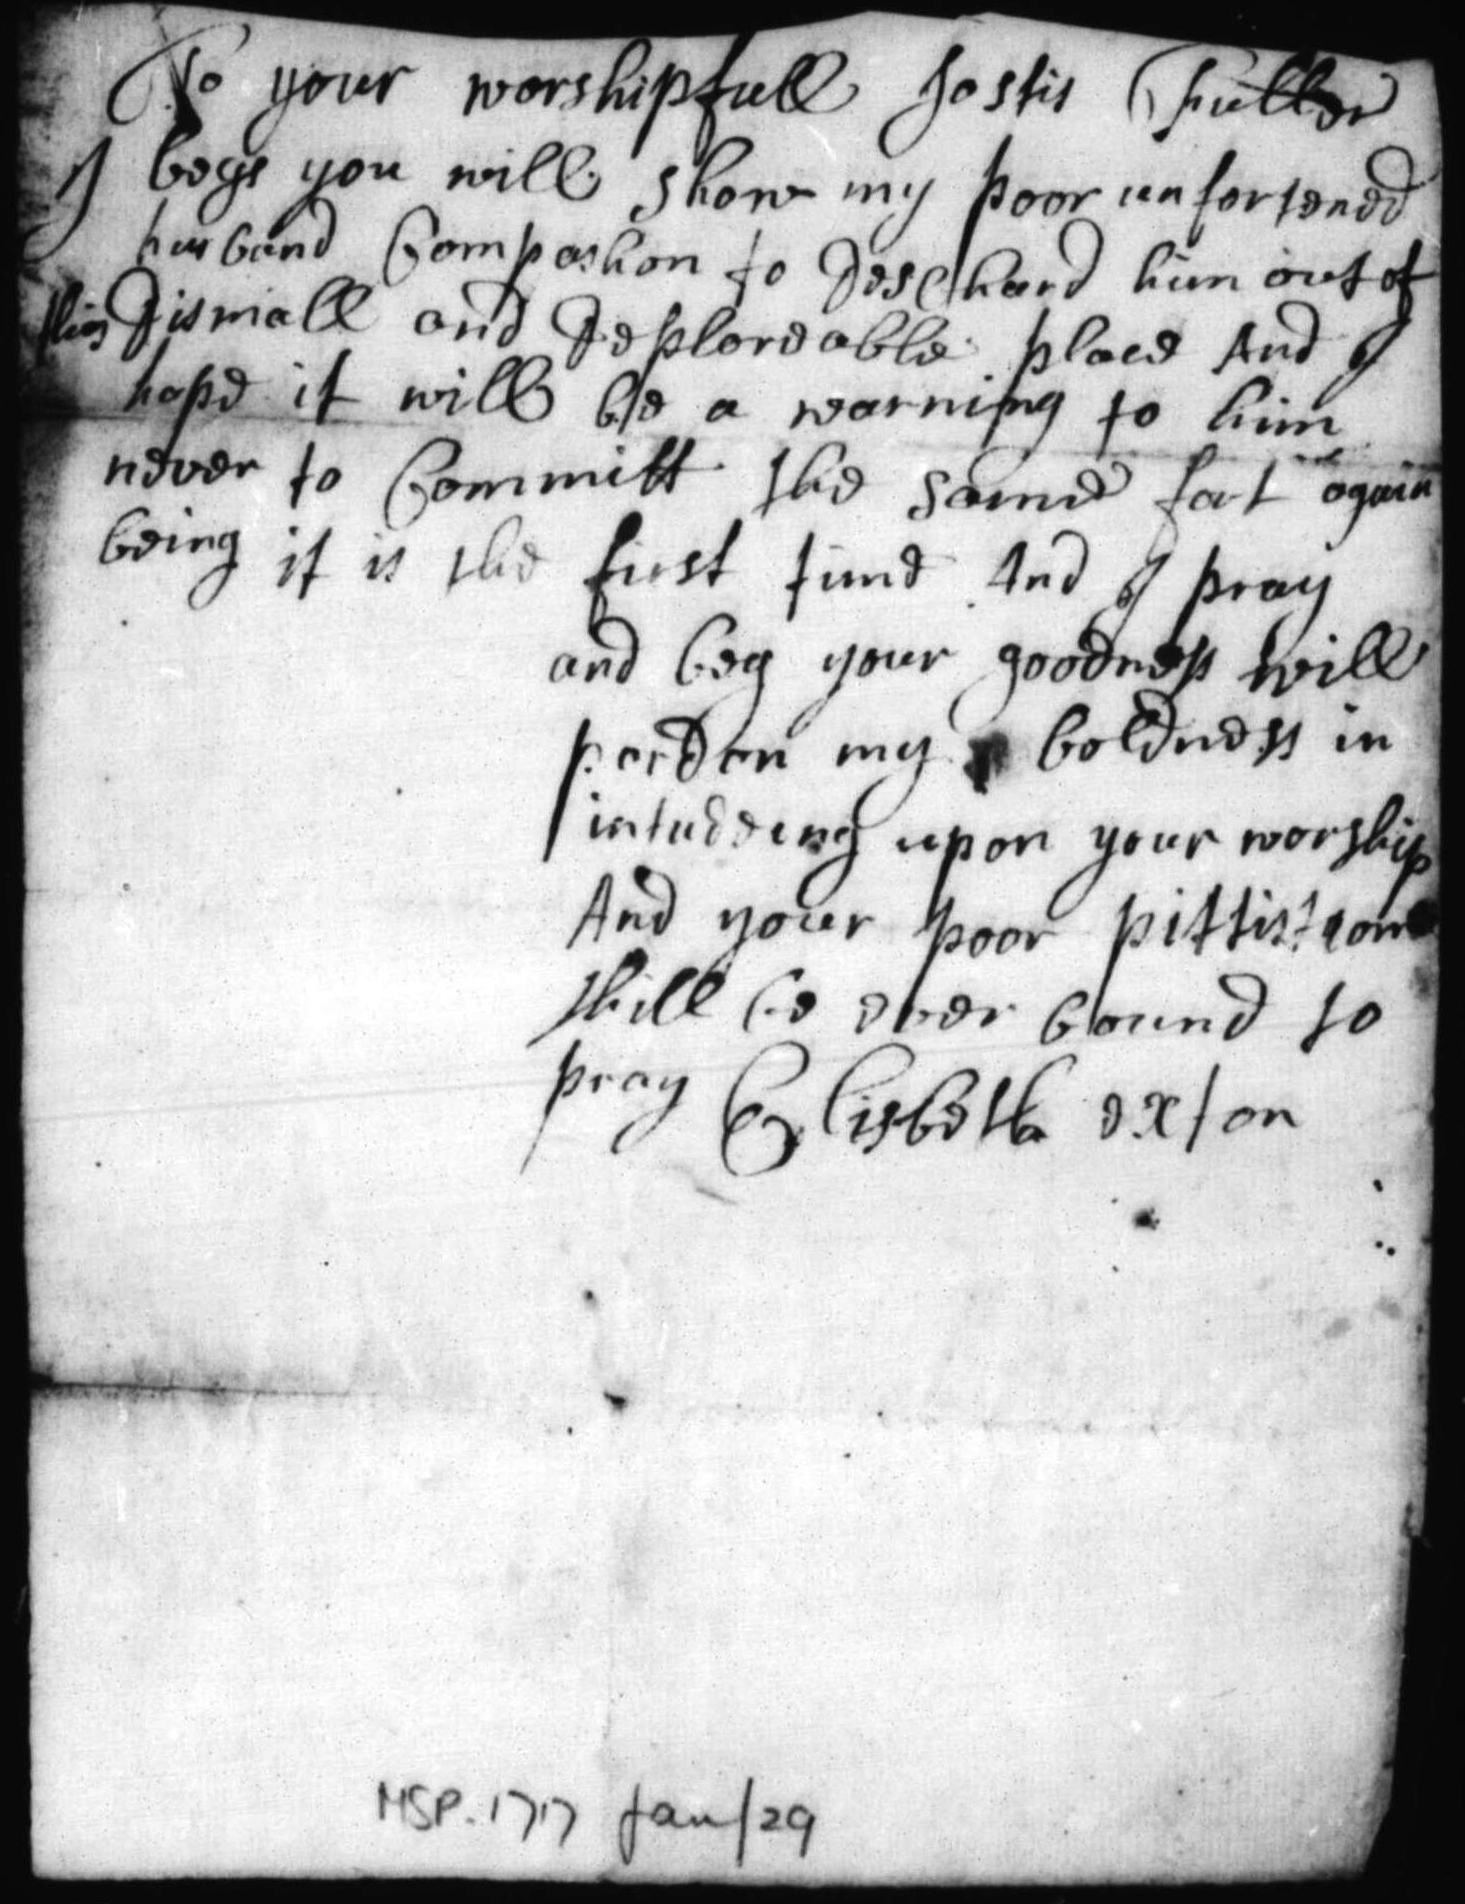 To your worshipfull Jostis fuller
I begs you will show my poor unfortened
husband Compashon to deschard him out of
this dismall and deploreable place And I
hope it will be a warning to him
never to Committ the same fact again
being it is the first time And I pray
and beg your goodness will
pardon my boldness in
intudeing upon your worship
And your poor pittist
shill be ever bound to
pray Elisbeth exton
MSP. 1717 Jan/29